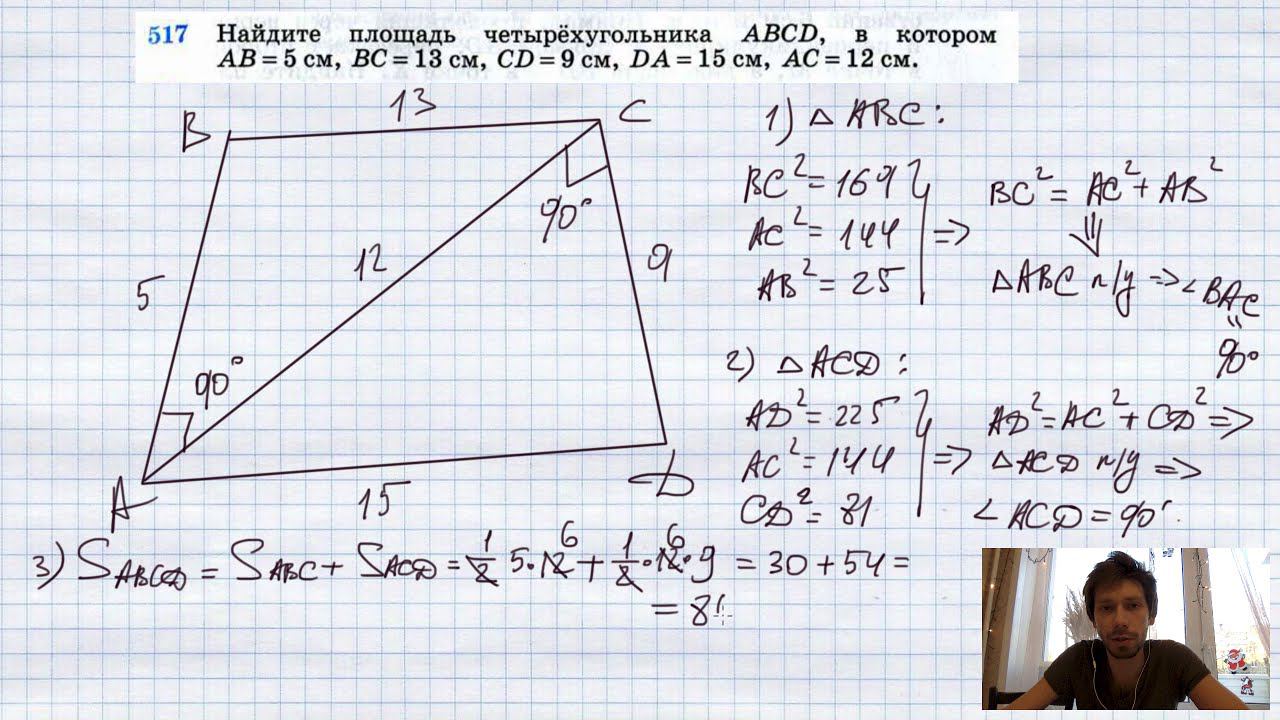 517 Найдите площадь четырёхугольника ABCD, в котором
AB = 5 см, BC = 13 см, CD = 9 см, DA = 15 см, AC = 12 см.
B 13 C
5 12 90° 9
90°
A 15 D
1) △ ABC:
BC² = 169
AC² = 144 =>
AB² = 25
BC² = AC² + AB²
⇓
△ABC п/у => ∠BAC
=
90°
2) △ ACD:
AD² = 225
AC² = 144 =>
CD² = 81
AD² = AC² + CD² =>
△ ACD п/у =>
∠ ACD = 90°.
3) S ABCD = S ABC + S ACD = 1/2 5·12 6 + 1/2 · 12 6 · 9 = 30 + 54 =
= 84